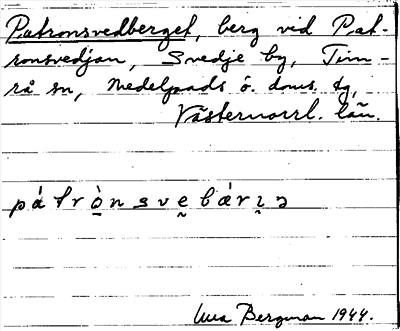 Patronsvedberget, berg vid Pat-
ronsvedjan, Svedje by, Tim-
rå sn, Medelpads ö. doms. tg,
Västernorrl. län.
pátrò̠nsvę̀bǽrı̨ɔ
Bergman 1944.